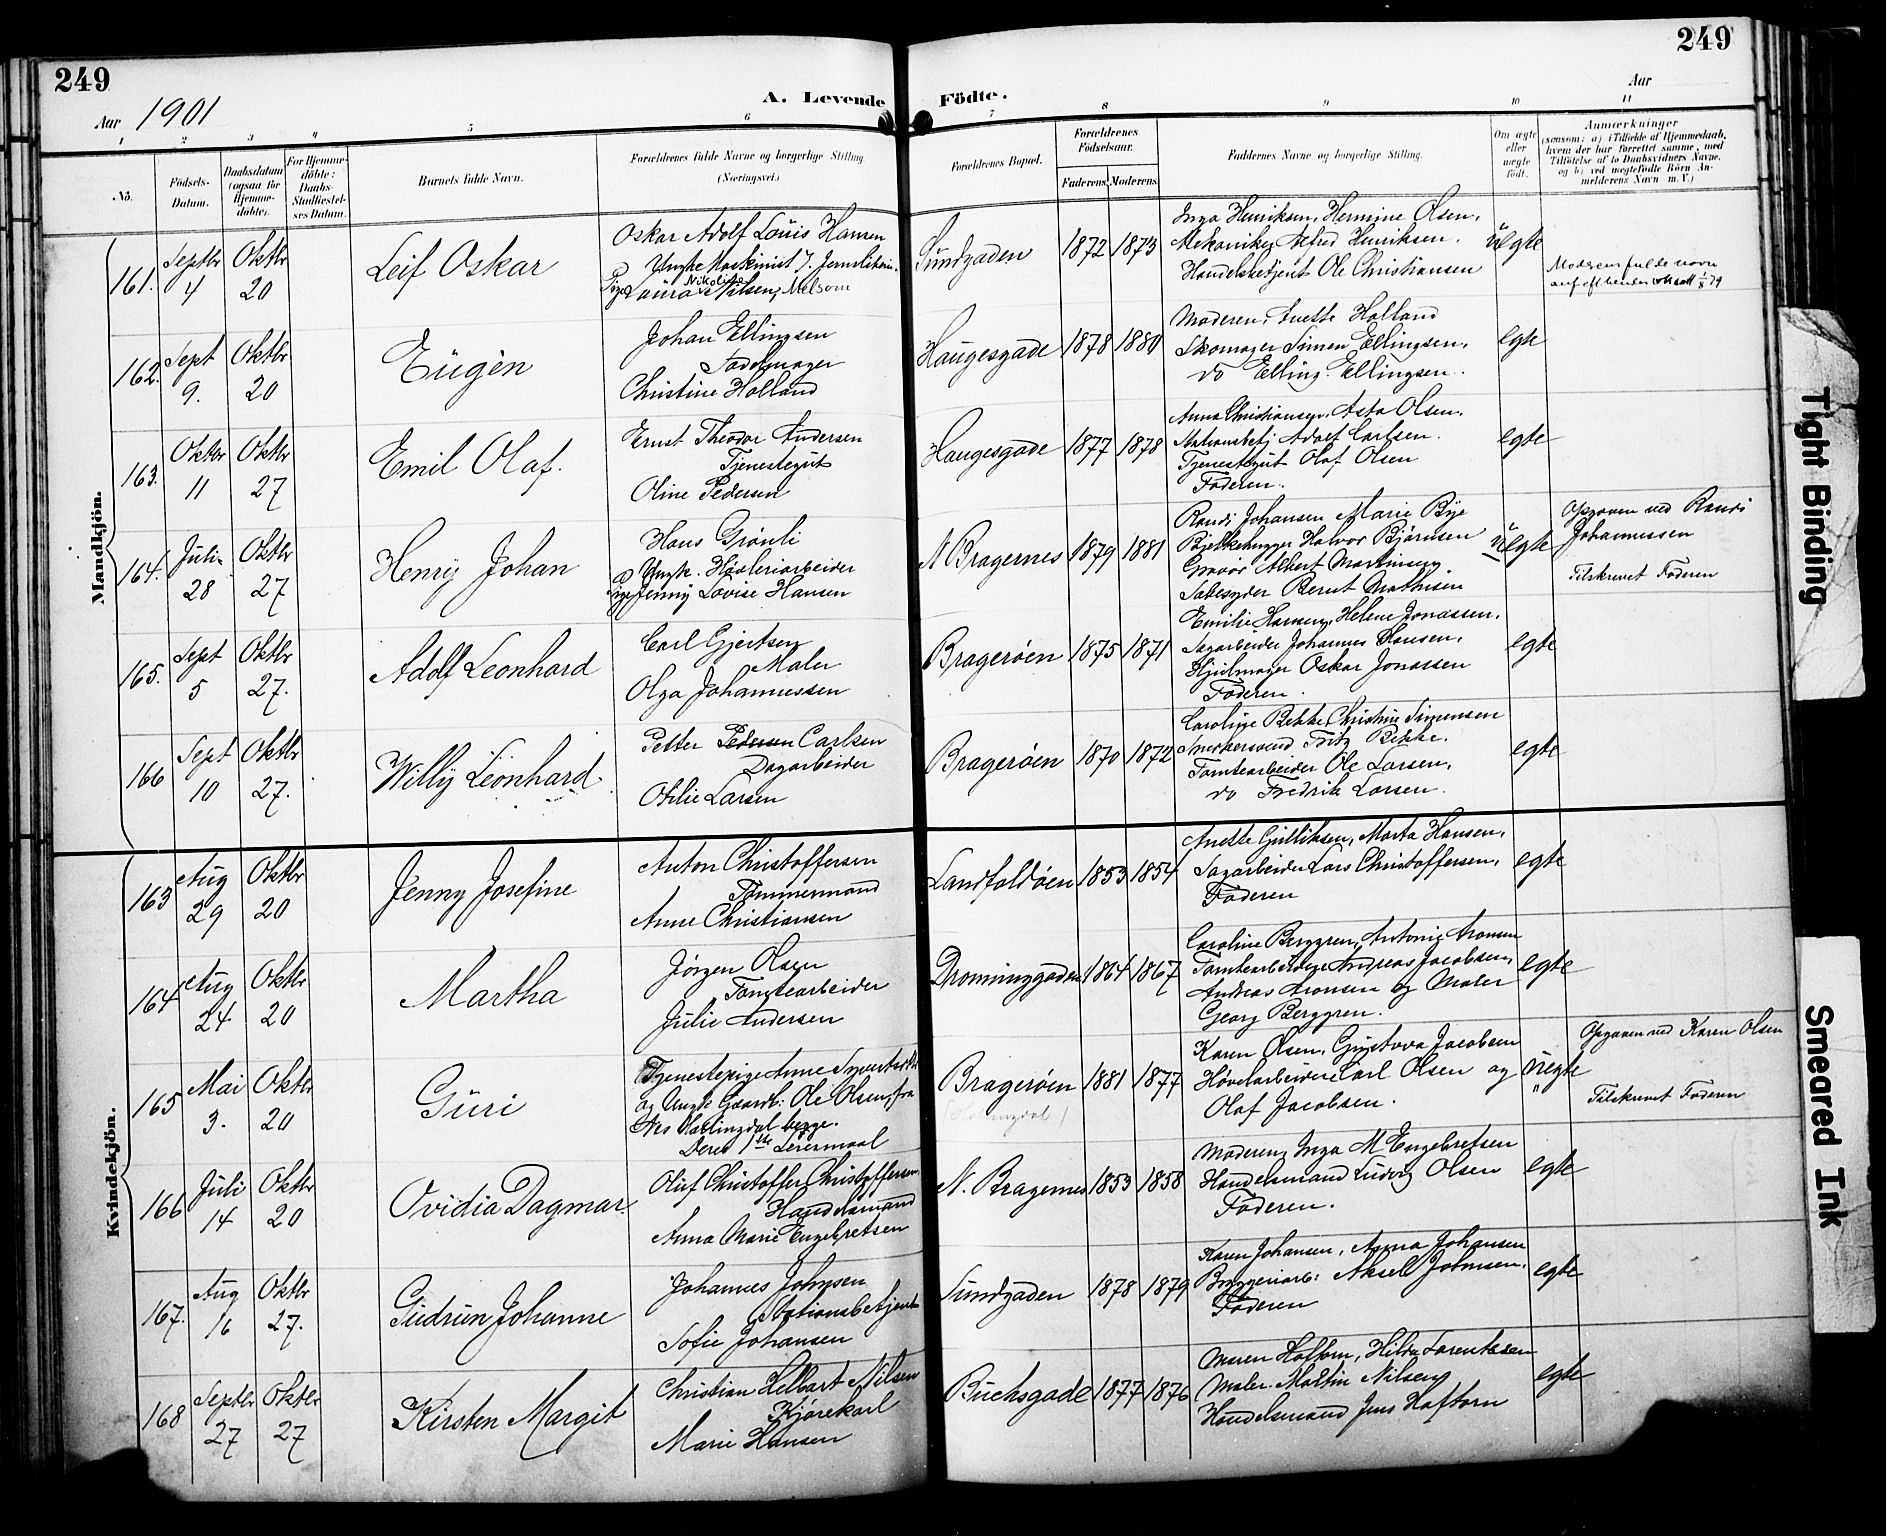 249
249
Aar 1901
A. Levende Födte.
Aar
1 2 3 4 5 6 7 8 9 10 11
No.
Födsels-Datum.
Daabsdatum (ogsaa for Hjemmedöbte).
For Hjemmedöbte: Daabs-Stadfæstelses Datum.
Barnets fulde Navn.
Forældrenes fulde Navne og borgerlige Stilling. (Næringsvei.)
Forældrenes Bopæl.
Forældrenes Födselsaar.
Faderens Moderens
Faddernes Navne og borgerlige Stilling.
Om ægte eller uægte födt.
Anmærkninger
(saasom: a) i Tilfælde af Hjemmedaab, hvem der har forrettet samme, med Tilföielse af to Daabsvidners Navne, og b) ved uægtefödte Börn Anmelderens Navn m. V.)
Mandkjön.
161. Septbr 4 Oktbr 20
Leif Oskar
Oskar Adolf Louis Hansen
Ungk Maskinist
Pige Laura Nikoline Nilsen, Melsom
Sundgaden 1872 1873
Inga Henriksen, Hermine Olsen,
Mekaniker Alfred Henriksen.
Handelsbetjent Ole Christiansen
uegte
Moderens fulde navn
162. Sept 9. Oktbr 20
Eugèn
Johan Ellingsen
Sadelmager
Christine Holland
Haugesgade 1878 1880
Moderen, Anette Holland
Skomager Simen Ellingsen,
do Elling Ellingsen.
egte
163. Oktbr 11 Oktbr 27
Emil Olaf.
Ernst Theodor Andersen
Tjenestegut
Oline Pedersen
Haugesgade 1877 1878
Anna Christiansen, Asta Olsen,
Stationsbetj Adolf Carlsen.
Tjenestegut Olaf Olsen
Faderen.
egte
164. Juli 28 Oktbr 27
Henry Johan
Hans Grönli
Ungk. Høvleriarbeider
Pige Jenny Lovise Hansen
N Bragernes 1879 1881
Randi Johansen Marie Bye
Bjelkehugger Halvor Björnsen
Gravør Albert Martinsen.
Sabesyder Bernt Mathisen
uegte
Opgaven ved Randi
Johannessen
Tilskrevet Faderen
165. Sept 5 Oktbr 27.
Adolf Leonhard
Carl Gjertsen
Maler
Olga Johannessen
Bragerøen 1875 1871
Emilie Hansen, Helene Jonassen,
Sagarbeider Johannes Hansen,
Hjulmager Oskar Jonassen
Faderen.
egte
166 Sept 10 Oktbr 27.
Willy Leonhard.
Petter Pedersen Carlsen
Dagarbeider
Otilie Larsen
Bragerøen 1870 1872
Caroline Bekke, Christine Simensen
Snekkersvend Fritz Bekke.
Tomtearbeider Ole Larsen,
do Fredrik Larsen.
egte
Kvindekjön.
163 Aug 29 Oktbr 20
Jenny Josefine
Anton Christoffersen
Tømmermand
Anne Christiansen
Landfaldøen 1853 1854
Anette Gulliksen, Marta Hansen,
Sagarbeider Lars Christoffersen,
Faderen
egte
164 Aug 24 Oktbr 20
Martha
Jörgen Olsen
Tomtearbeider
Julie Andersen
Dronninggaden 1864 1867
Caroline Berggren, Antonie Aronsen
Tomtearbeidere Andreas Jacobsen,
Andreas Aronsen og Maler
Georg Berggren.
egte
165 Mai 3. Oktbr 20
Guri
Tjenestepige Anne
og Ungk Gaardb: Ole Olsen, fra
Nes Hallingdal begge.
Deres 1ste Leiermaal
Bragerøen 1881 1877
Karen Olsen, Gustava Jacobsen
Høvelarbeidere Carl Olsen og
Olaf Jacobsen.
uegte
Opgaven ved Karen Olsen
Tilskrevet Faderen
166 Juli 14 Oktbr 20
Ovidia Dagmar.
Oluf Christoffer Christoffersen
Handelsmand
Anna Marie Engebretsen
N. Bragernes 1853 1858
Moderen, Inga M Engebretsen
Handelsmand Ludvig Olsen
Faderen.
egte
167. Aug 16 Oktbr 27.
Gudrun Johanne
Johannes Johnsen
Stationsbetjent
Sofie Johansen
Sundgaden 1878 1879
Karen Johansen, Anna Johansen
Bryggeriarb: Aksel Johnsen.
Faderen
egte
168 Septbr 27 Oktbr 27
Kirsten Margit
Christian Helbart Nilsen
Kjørekarl
Marie Hansen
Buchsgade 1877 1876
Maren Haftorn, Hilda Lorentzen
Maler Martin Nilsen
Handelsmand Jens Haftorn
egte
Tight Binding
Smeared Ink